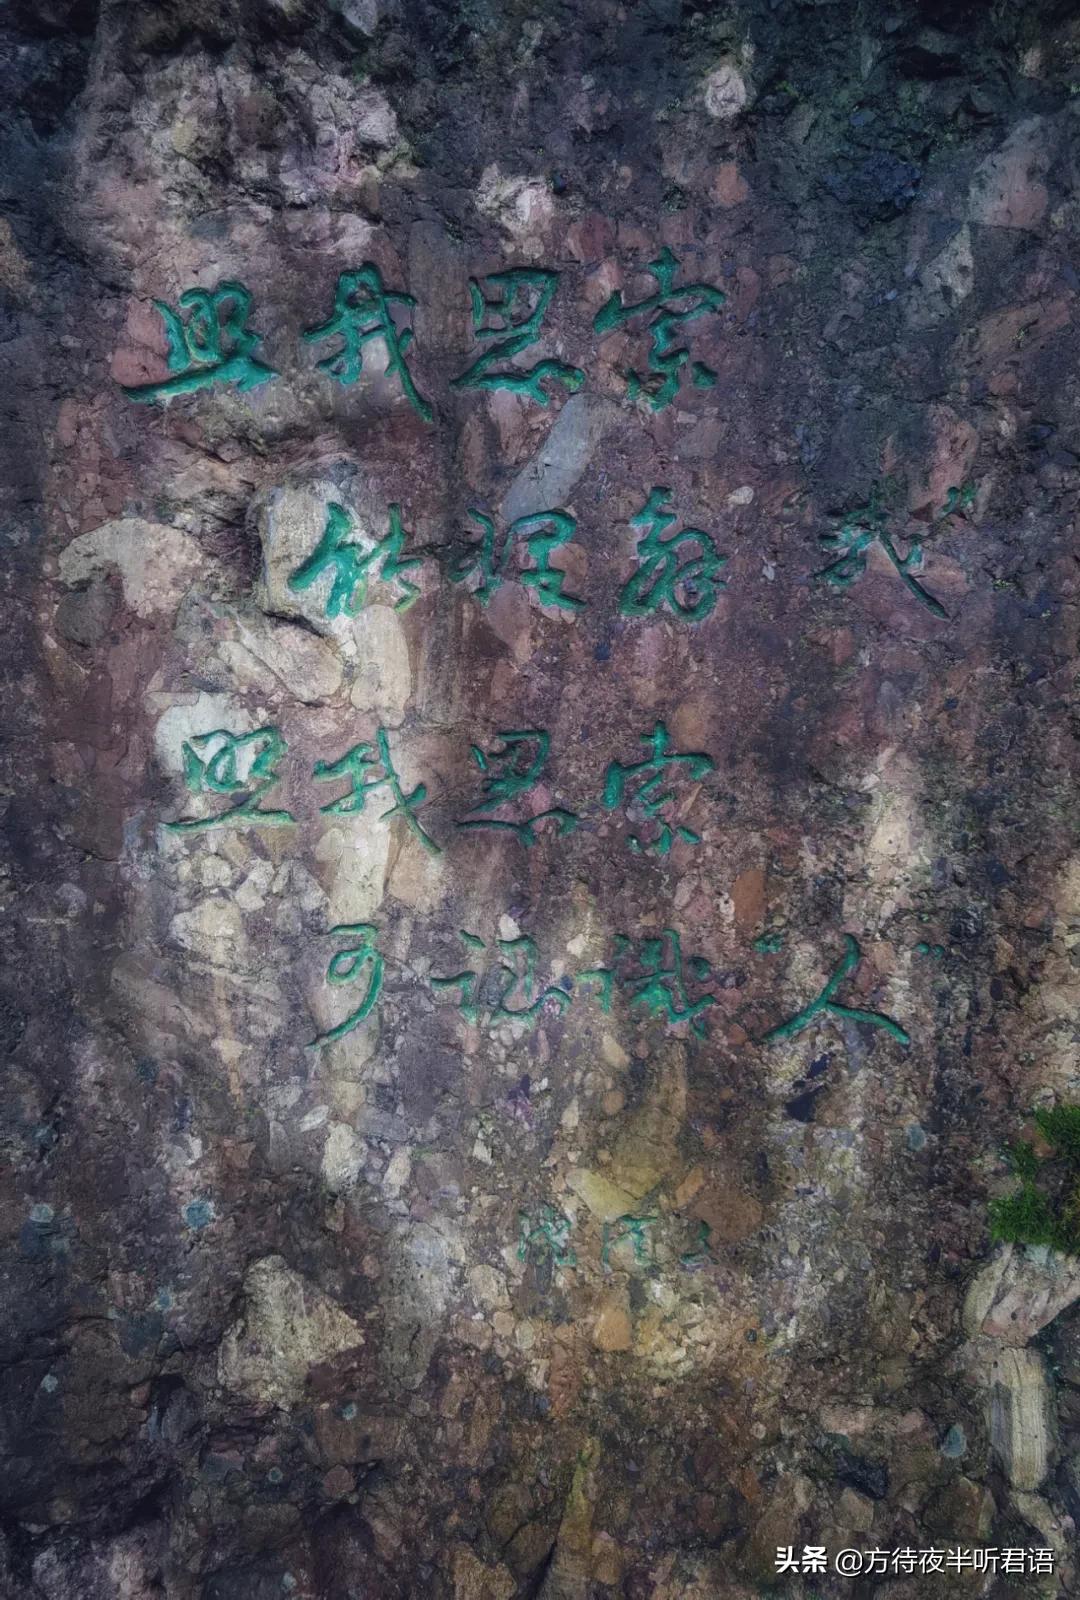 照我思索
能理解“我”
照我思索
可认识“人”
沈从文
头条 @方待夜半听君语